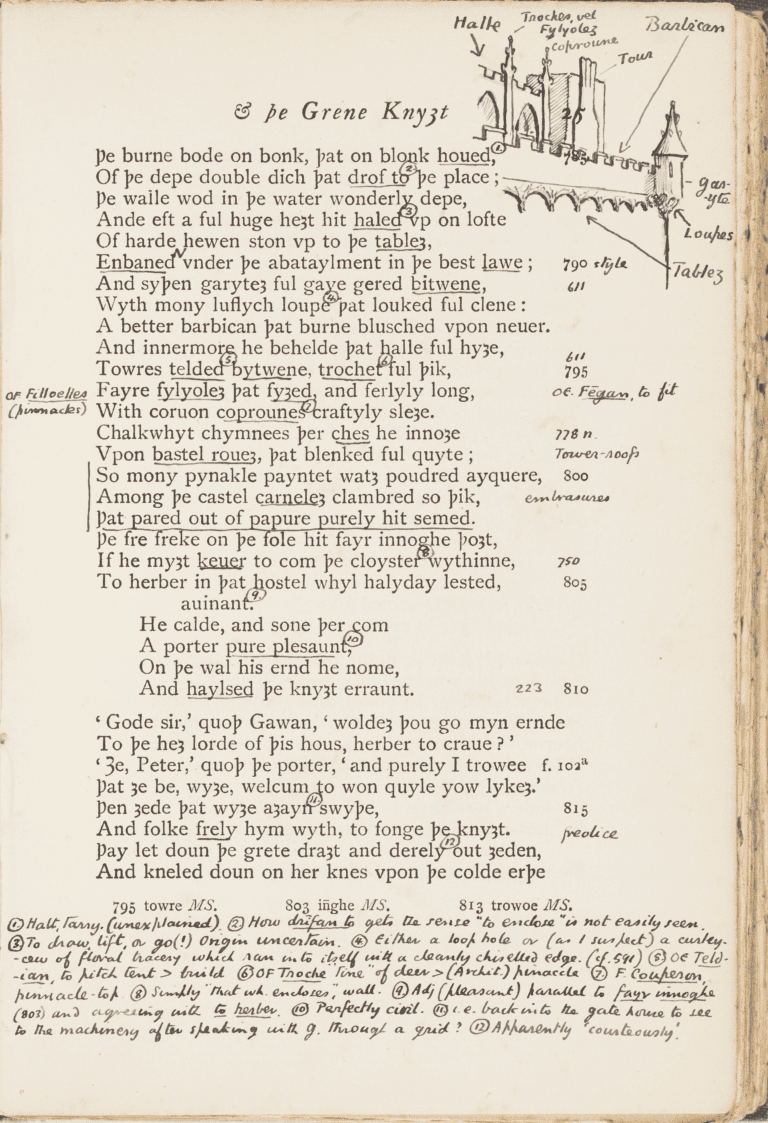 Halle
Troches, vel
Fylyolez
coproune
Barbican
Tour
& þe Grene Knyȝt
25
Þe burne bode on bonk, þat on blonk houed, ① 785
Of þe depe double dich þat drof to ② þe place ;
Þe walle wod in þe water wonderly depe,
gar-
-yte
Ande eft a ful huge heȝt hit haled ③ vp on lofte
Loupes
Of harde hewen ston vp to þe tableȝ,
Tablez
Enbaned vnder þe abataylment in þe best lawe ; 790 style
And syþen garyteȝ ful gaye gered bitwene, 611
Wyth mony luflych loupe ④ þat louked ful clene :
A better barbican þat burne blusched vpon neuer.
And innermore he behelde þat halle ful hyȝe, 611
Towres telded ⑤ bytwene, trochet ⑥ ful þik, 795
OF Filloelles
(pinnacles)
Fayre fylyoleȝ þat fyȝed, and ferlyly long, OE. Fēgan, to fit
With coruon coprounes ⑦ craftyly sleȝe.
Chalkwhyt chymnees þer ches he innoȝe 778 n.
Vpon bastel roueȝ, þat blenked ful quyte ; Tower-roofs
So mony pynakle payntet watȝ poudred ayquere, 800
Among þe castel carneleȝ clambred so þik, embrasures
Þat pared out of papure purely hit semed.
Þe fre freke on þe fole hit fayr innoghe þoȝt,
If he myȝt keuer to com þe cloyster ⑧ wythinne, 750
To herber in þat hostel whyl halyday lested, 805
auinant. ⑨
He calde, and sone þer com
A porter pure plesaunt, ⑩
On þe wal his ernd he nome,
And haylsed þe knyȝt erraunt. 223 810
‘ Gode sir,’ quoþ Gawan, ‘ woldeȝ þou go myn ernde
To þe heȝ lorde of þis hous, herber to craue ? ’
‘ Ȝe, Peter,’ quoþ þe porter, ‘ and purely I trowee f. 102a
Þat ȝe be, wyȝe, welcum to won quyle yow lykeȝ.’
Þen ȝede þat wyȝe aȝayn ⑪ swyþe, 815
And folke frely hym wyth, to fonge þe knyȝt.
Þay let doun þe grete draȝt and derely ⑫ out ȝeden,
And kneled doun on her knes vpon þe colde erþe
795 towre MS. 803 iñghe MS. 813 trowoe MS.
① Halt, tarry. (unexplained). ② How drīfan to gets the sense "to enclose" is not easily seen.
③ To draw, lift, or go(!) Origin uncertain. ④ Either a loop hole or (as I suspect) a curley-
-cew of floral tracery which ran into itself with a cleanly chiselled edge. (cf. 591) ⑤ OE Teld-
-ian, to pitch tent > build ⑥ OF Troche "tine" of deer > (Archit.) pinnacle ⑦ F. Couperon,
pinnacle-top. ⑧ Simply "that wh. encloses", wall. ⑨ Adj (pleasant) parallel to fayr innoghe
(803) and agreeing with to herber. ⑩ Perfectly civil. ⑪ i.e. back into the gate house to see
to the machinery after speaking with G. through a grid ? ⑫ Apparently 'courteously'.